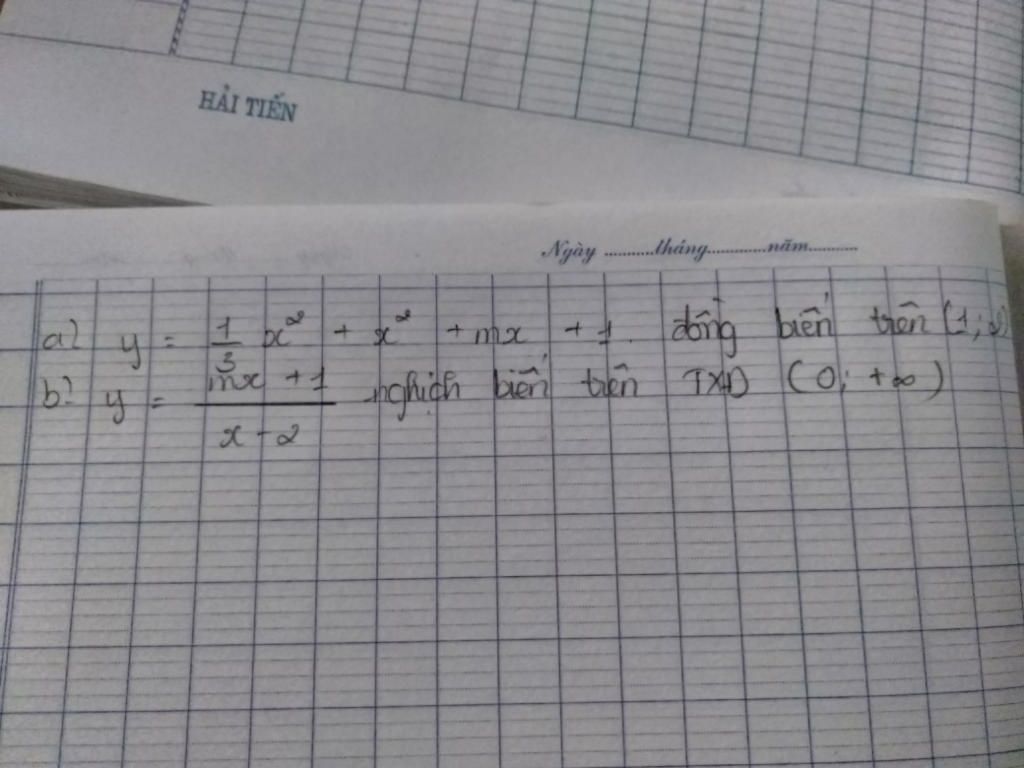 HẢI TIẾN
Ngày ...........tháng............năm..........
a) y = 1/3 x² + x² + mx + 1. đồng biến trên (1; 2)
b) y = mx + 1 / x - 2 nghịch biến trên TXĐ (0; +∞)